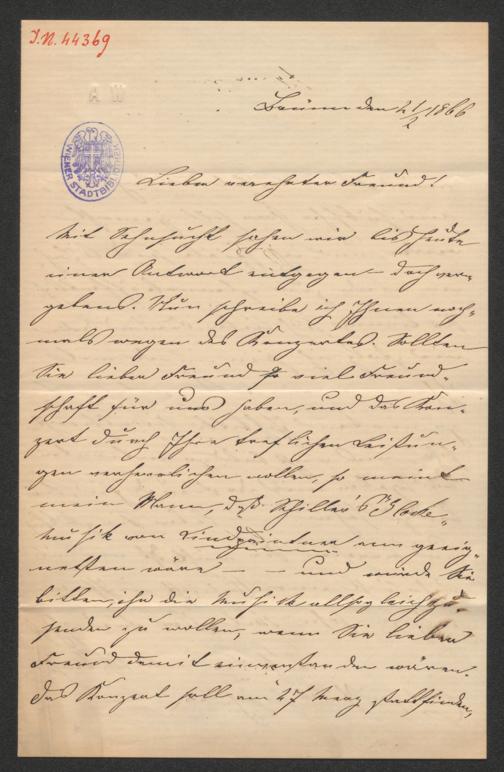 I.N. 44369
A W
WIENER STADTBIBLIOTHEK
Brünn den 21/2 1866
Lieber verehrter Freund!
Mit Sehnsucht sahen wir bis heute
einer Antwort entgegen – doch ver-
gebens. Nun schreibe ich Ihnen noch-
mals wegen des Konzertes. Sollten
Sie lieber Freund so viel Freund-
schaft für uns haben, und das Kon-
zert durch Ihre treflichen Leistun-
gen verherrlichen wollen, so meint
mein Mann, daß Schiller's Glocke
Musik von Lindpaintner am geeig-
netsten wäre – – und würde Sie
bitten, ihr die Musik allsogleich zu-
senden zu wollen, wenn Sie lieber
Freund damit einverstanden wären.
Das Konzert soll am 27 März stattfinden,